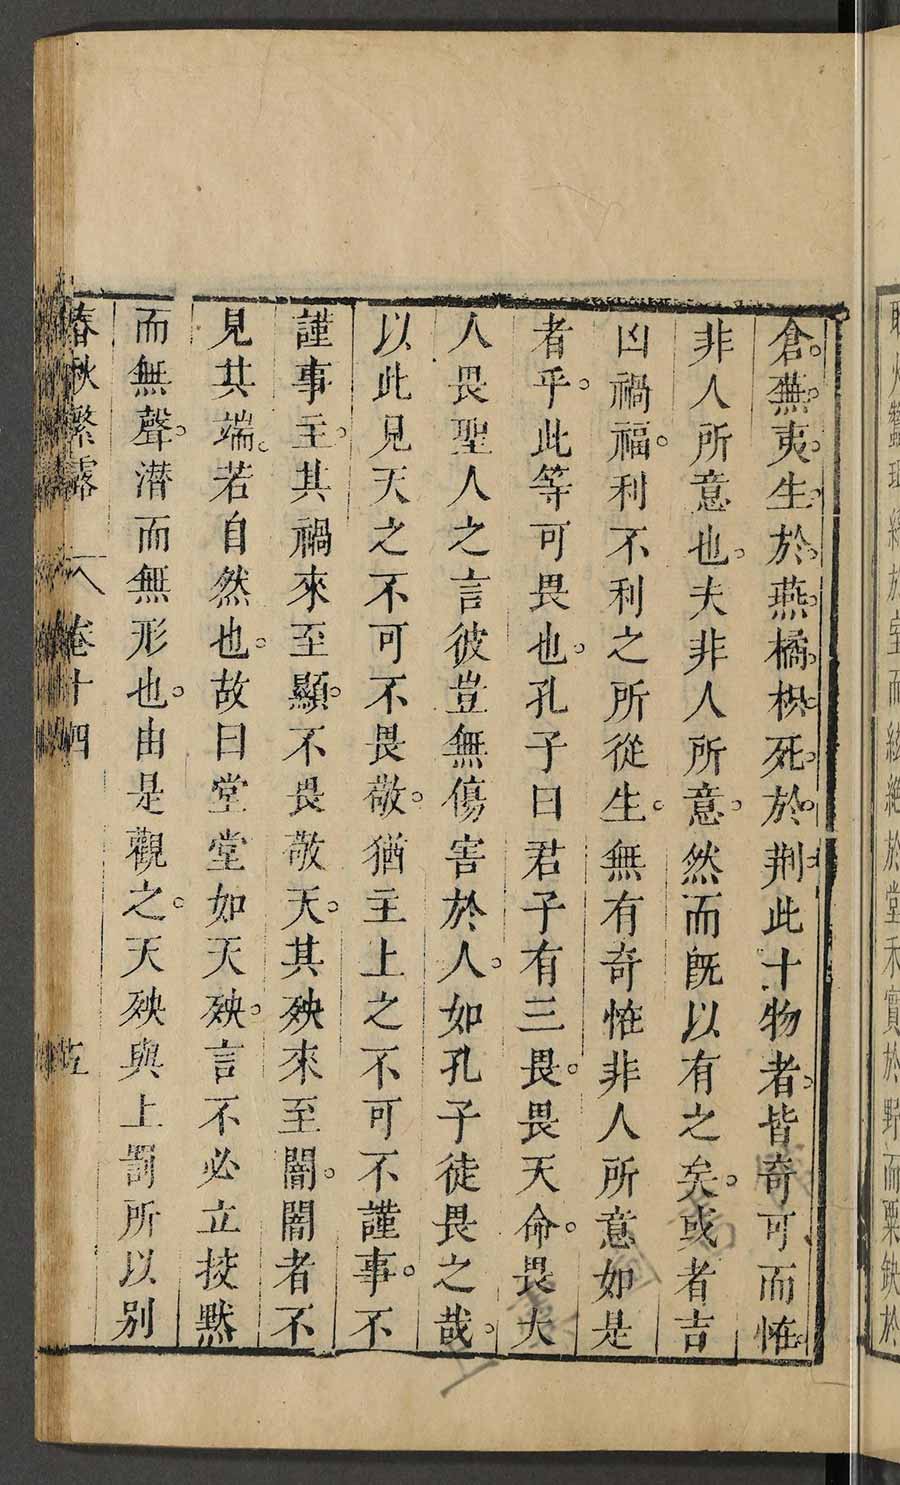 倉。蕪。夷。生。於。燕。橘。枳。死。於。荆。此十物者。皆奇可而恠。
非人所意也。夫非人所意。然而旣以有之矣。或者吉
凶禍福。利不利之所從生。無有奇恠非人所意如是
者乎。此等可畏也。孔子曰君子有三畏。畏天命。畏大
人畏聖人之言彼豈無傷害於人。如孔子徒畏之哉。
以此見天之不可不畏敬。猶主上之不可不謹事。不
謹事主。其禍來至顯。不畏敬天。其殃來至闇。闇者不
見其端。若自然也。故曰堂堂如天殃。言不必立挍黙
而無聲。潜而無形也。由是觀之。天殃與上罰所以別
春秋繁露 卷十四 五